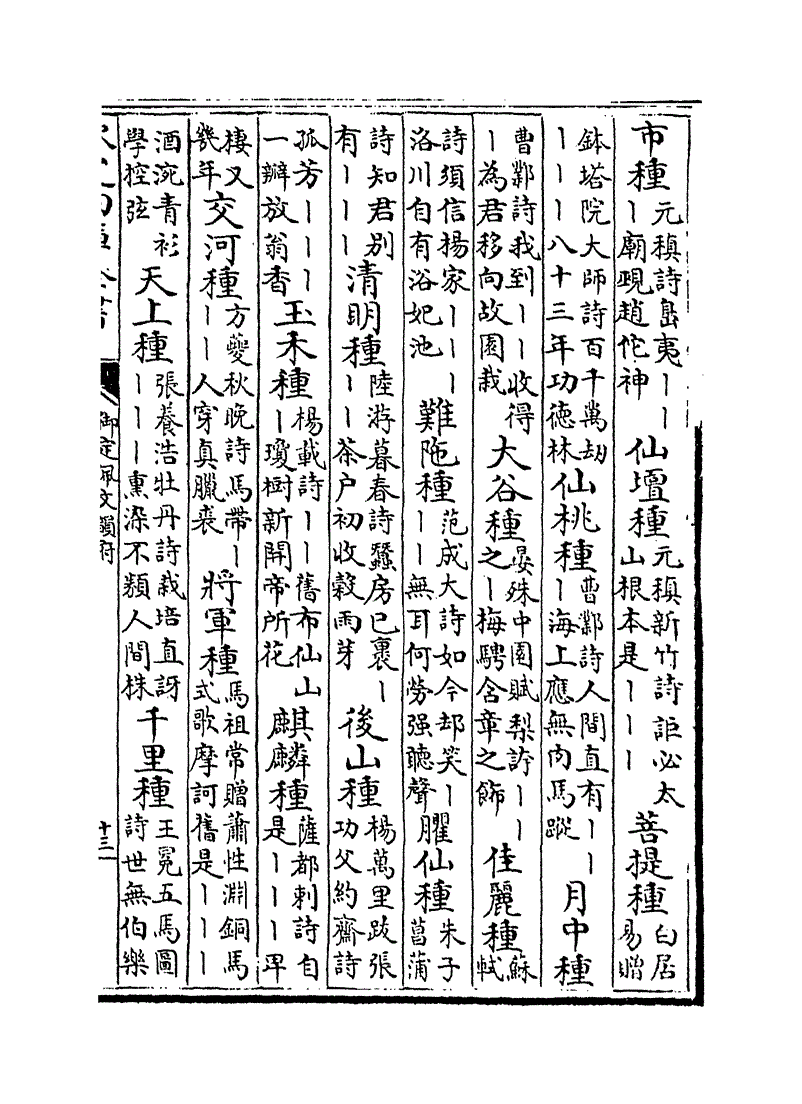 市種元稹詩島夷｜｜｜廟覡趙佗神仙壇種元稹新竹詩詎必太山根本是｜｜｜菩提種白居易贈
鉢塔院大師詩百千萬劫｜｜｜八十三年功德林仙桃種曹鄴詩人間直有｜｜｜海上應無肉馬蹤月中種
曹鄴詩我到｜｜收得｜為君移向故園栽大谷種晏殊中園賦梨誇｜｜之｜梅騁含章之飾佳麗種蘇軾
詩須信楊家｜｜｜洛川自有浴妃池難陁種范成大詩如今却笑｜｜｜無耳何勞强聽聲臞仙種朱子菖蒲
詩知君别有｜｜｜清明種陸游暮春詩蠶房已裹｜｜｜茶户初收穀雨芽後山種楊萬里跋張功父約齋詩
孤芳｜｜｜一瓣放翁香玉禾種楊載詩｜｜舊布仙山｜瓊樹新開帝所花麒麟種薩都剌詩自是｜｜｜罕
棲又幾年交河種方夔秋晚詩馬帶｜｜｜人穿真臘裘將軍種馬祖常贈蕭性淵銅馬式歌摩訶舊是｜｜｜
酒涴青衫學控弦天上種張養浩牡丹詩栽培直訝｜｜｜熏染不類人間株千里種王冕五馬圖詩世無伯樂
御定佩文韻府
十三